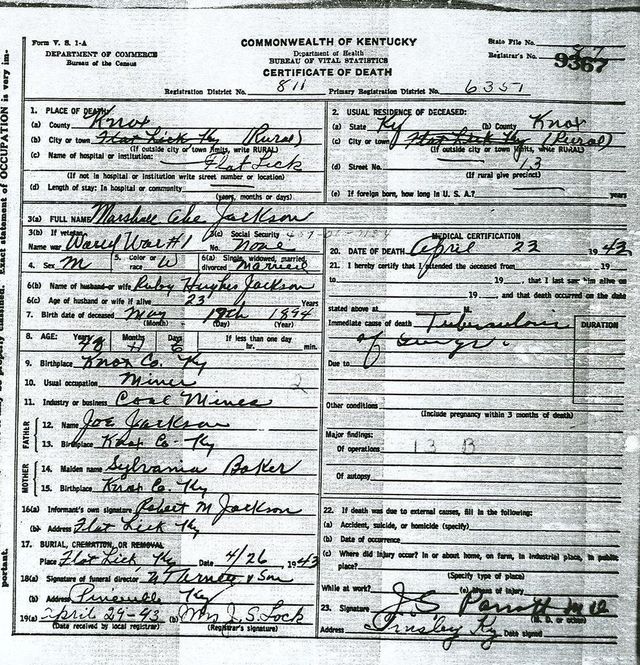 Form V. S. 1-A
DEPARTMENT OF COMMERCE
Bureau of the Census
COMMONWEALTH OF KENTUCKY
Department of Health
BUREAU OF VITAL STATISTICS
CERTIFICATE OF DEATH
State File No.
Registrar's No. 9367
Registration District No. 811 Primary Registration District No. 6351
1. PLACE OF DEATH
(a) County Knox
(b) City or town Flat Lick Ky (Rural)
(If outside city or town limits, write RURAL)
(c) Name of hospital or institution: Flat Lick
(If not in hospital or institution write street number or location)
(d) Length of stay: In hospital or community
(years, months or days)
2. USUAL RESIDENCE OF DECEASED:
(a) State Ky (b) County Knox
(c) City or town Flat Lick Ky (Rural)
(If outside city or town limits, write RURAL)
(d) Street No. 13
(If rural give precinct)
(e) If foreign born, how long in U. S. A.? years
3(a) FULL NAME Marshall Abe Jackson
3(b) If veteran,
Name war World War #1
3(c) Social Security
No. none
4. Sex M
5. Color or
race W
6(a) Single, widowed, married,
divorced Married
6(b) Name of husband or wife Ruby Hughes Jackson
6(c) Age of husband or wife if alive 23 Years
7. Birth date of deceased May 17th 1894
(Month) (Day) (Year)
8. AGE: Years 48 Months 11 Days 6 If less than one day
hr. min.
9. Birthplace Knox Co. Ky
10. Usual occupation Miner
11. Industry or business Coal Mines
FATHER
12. Name Joe Jackson
13. Birthplace Knox Co - Ky
MOTHER
14. Maiden name Sylvania Baker
15. Birthplace Knox Co. Ky
16(a) Informant's own signature Robert M Jackson
(b) Address Flat Lick Ky
17. BURIAL, CREMATION, OR REMOVAL
Place Flat Lick Ky Date 4/26 1943
18(a) Signature of funeral director & Son
(b) Address Pineville Ky
19(a) April 29-43 (b) Mrs J. S. Lock
(Date received by local registrar) (Registrar's signature)
MEDICAL CERTIFICATION
20. DATE OF DEATH April 23 1943
21. I hereby certify that I attended the deceased from 19
, to 19 , that I last saw him alive on
19 , and that death occurred on the date
stated above at M.
Immediate cause of death Tuberculosis
of lungs.
DURATION
Due to
Other conditions
(Include pregnancy within 3 months of death)
Major findings:
Of operations 13 B
Of autopsy
22. If death was due to external causes, fill in the following:
(a) Accident, suicide, or homicide (specify)
(b) Date of occurrence
(c) Where did injury occur? In or about home, on farm, in industrial place, in public
place?
(Specify type of place)
While at work? (e) Means of injury
23. Signature J. S. Parrott M D
(M. D. or other)
Address Ky Date signed
Exact statement of OCCUPATION is very im-
properly classified.
portant.